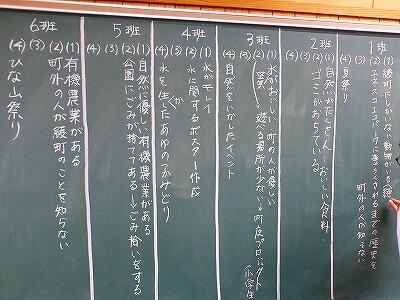 1班
(1) 綾町にしかいない動物がいる
(2) ユネスコエコパークに
までの歴史を
町外の人が知らない
(3)
(4) 夏祭り
2班
(1) 自然がたくさん おいしい食料
(2) ゴミがおちている
(3)
(4)
3班
(1) 水がおいしい 町の人が優しい
(2) 遊べる場所が少ない→町
プロジェクト
小学生
(3)
(4) 自然をいかしたイベント
4班
(1) 水がキレイ
(2) 水に関するポスター作成
(3)
(4) 水を生かしたあゆのつかみどり
5班
(1) 自然に優しい有機農業がある
(2) 公園にごみが捨ててある→ごみ拾いをする
(3)
(4)
6班
(1) 有機農業がある
(2) 町外の人が綾町のことを知らない
(3)
(4) ひな山祭り